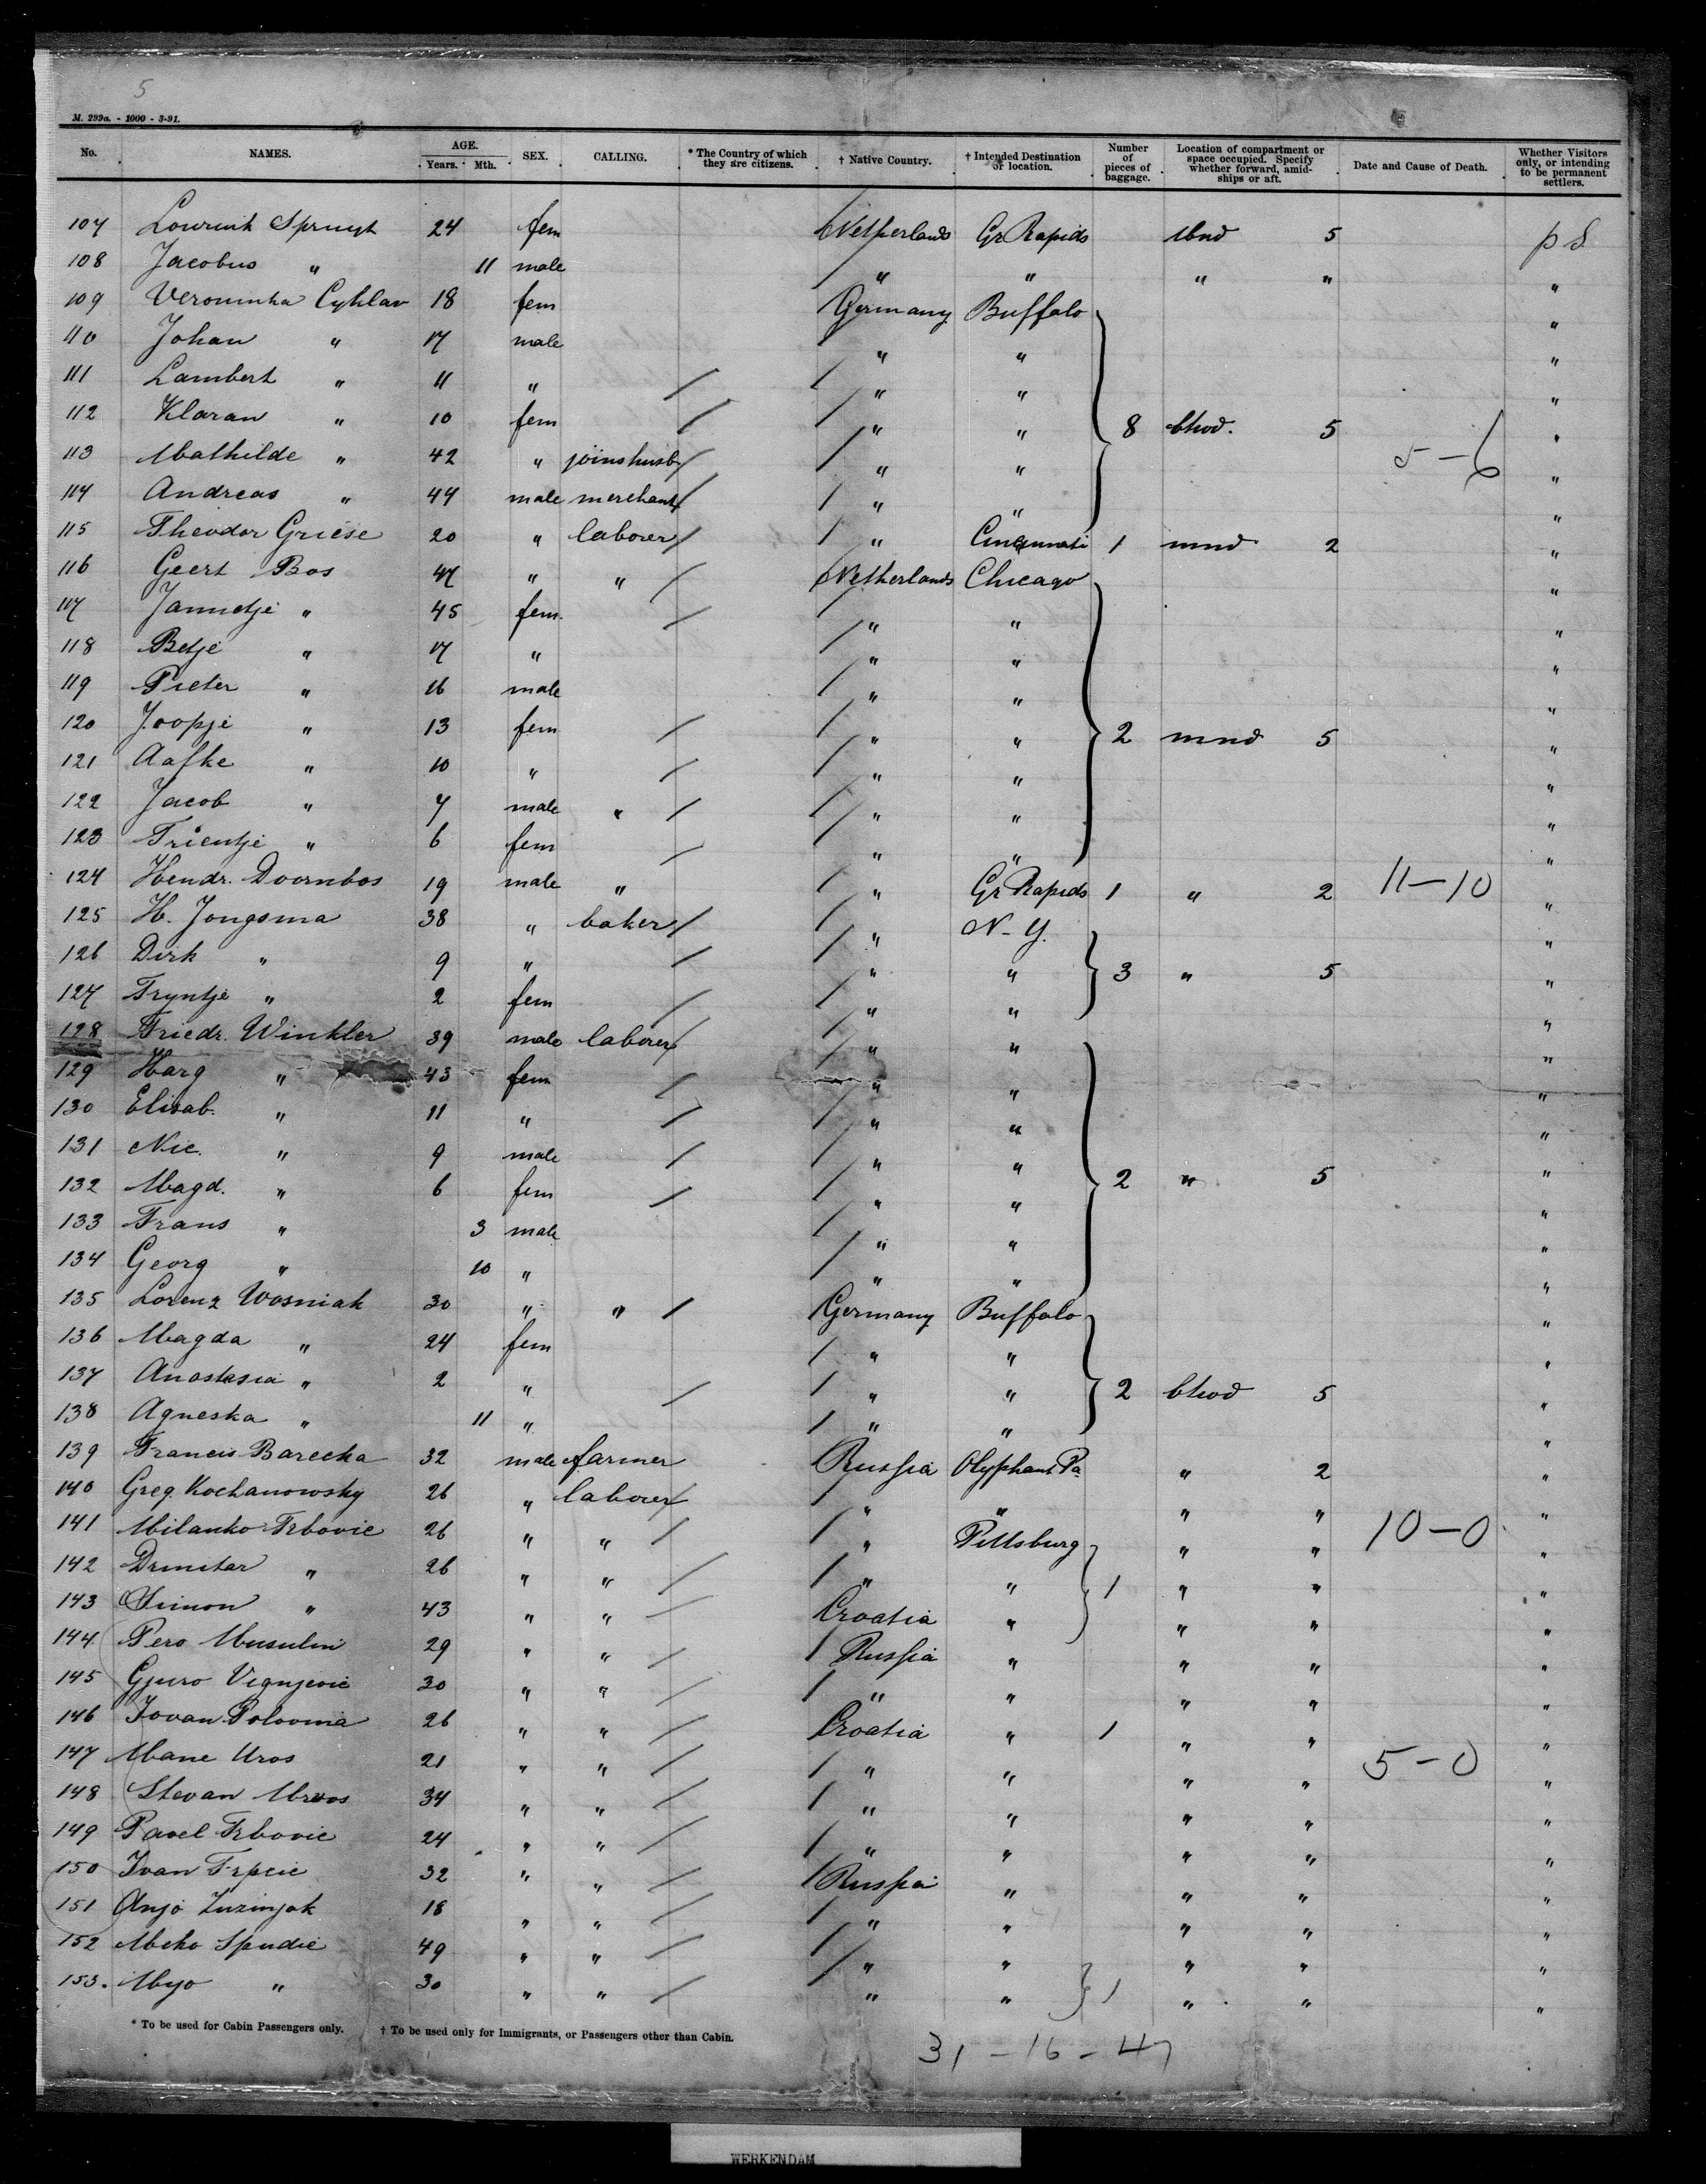 5
M. 299a. - 1000 - 3-91.
No. NAMES. AGE. Years. Mth. SEX. CALLING. * The Country of which they are citizens. † Native Country. † Intended Destination or location. Number of pieces of baggage. Location of compartment or space occupied. Specify whether forward, amidships or aft. Date and Cause of Death. Whether Visitors only, or intending to be permanent settlers.
107 Spruyt 24 fem Netherlands Gr Rapids 5 p S.
108 Jacobus " 11 male " " " " "
109 Cyhlav 18 fem Germany Buffalo "
110 Johan " 17 male " " "
111 Lambert " 11 " " " "
112 Klaran " 10 fem " " 8 5 "
113 Mathilde " 42 " joins husb " " 5 - 6 "
114 Andreas " 44 male merchant " " "
115 Theodor Griese 20 " laborer " Cincinnati 1 mnd 2 "
116 Geert Bos 47 " " Netherlands Chicago "
117 Jannetje " 45 fem. " " "
118 Betje " 17 " " " "
119 Pieter " 16 male " " "
120 Joopje " 13 fem " " 2 mnd 5 "
121 Aafke " 10 " " " "
122 Jacob " 7 male " " " "
123 Trientje " 6 fem " " "
124 Hendr. Doornbos 19 male " " Gr Rapids 1 " 2 11-10 "
125 H. Jongsma 38 " baker " N-Y. "
126 Dirk " 9 " " " 3 " 5 "
127 Tryntje " 2 fem " " "
128 Friedr. Winkler 39 male laborer " " "
129 Marg " 43 fem " " "
130 Elisab. " 11 " " " "
131 Nic. " 9 male " " "
132 Magd. " 6 fem " " 2 " 5 "
133 Frans " 3 male " " "
134 Georg " 10 " " " "
135 Lorenz Wosniak 30 " " Germany Buffalo "
136 Magda " 24 fem " " "
137 Anastasia " 2 " " " 2 5 "
138 Agneska " 11 " " " "
139 Francis Barecka 32 male farmer Russia Olyphant Pa " 2 "
140 Greg. Kochanowsky 26 " laborer " " " " "
141 Milanko Trbovic 26 " " " Pittsburg " " 10-0 "
142 Dmitar " 26 " " " " 1 " " "
143 Simon " 43 " " Croatia " " " "
144 Pero Musulin 29 " " Russia " " " "
145 Gjuro Vignjevic 30 " " " " " " "
146 Jovan Polovina 26 " " Croatia " 1 " " "
147 Mane Uros 21 " " " " " " 5-0 "
148 Stevan 34 " " " " " " "
149 Pavel Trbovic 24 " " " " " " "
150 Ivan Trpcic 32 " " Russia " " " "
151 Anjo Zuzinjak 18 " " " " " " "
152 Meho Spudic 49 " " " " " " "
153. Myo " 30 " " " " 1 " " "
* To be used for Cabin Passengers only. † To be used only for Immigrants, or Passengers other than Cabin.
31 - 16 - 47
WERKENDAM